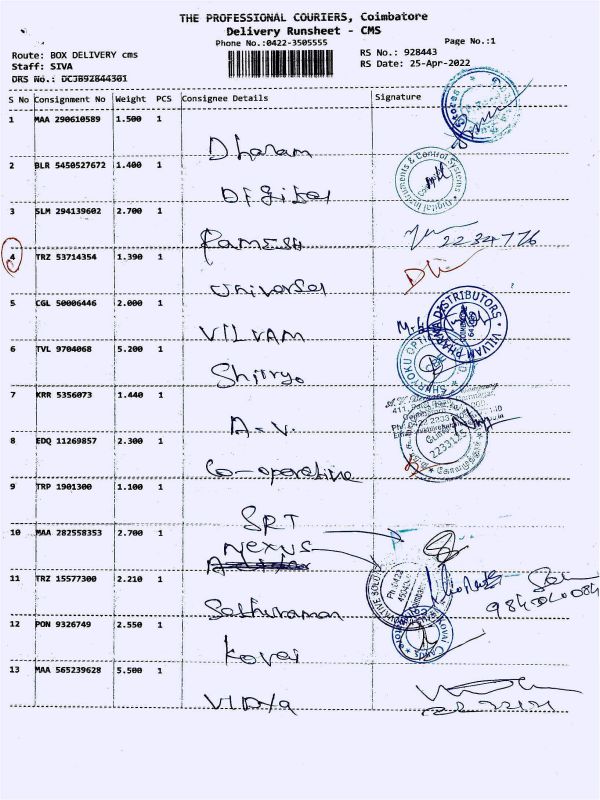 THE PROFESSIONAL COURIERS, Coimbatore
Delivery Runsheet - CMS
Phone No.:0422-3505555
Page No.:1
Route: BOX DELIVERY cms
RS No.: 928443
Staff: SIVA
RS Date: 25-Apr-2022
DRS No.: DCJB92844301
S No Consignment No Weight PCS Consignee Details Signature
1 MAA 290610589 1.500 1
Dharam
2 BLR 5450527672 1.400 1
Digital
Digital Instruments & Control Systems
3 SLM 294139602 2.700 1
Ramesh
2234776
4 TRZ 53714354 1.390 1
Universal
5 CGL 50006446 2.000 1
VILVAM
VILVAM PHARMA DISTRIBUTORS
6 TVL 9704068 5.200 1
Shiryo
SHIRYOKU OPTI
7 KRR 5356073 1.440 1
A.V.
8 EDQ 11269857 2.300 1
Co-operative
9 TRP 1901300 1.100 1
SRT
10 MAA 282558353 2.700 1
Nexus
11 TRZ 15577300 2.210 1
Sethuraman
12 PON 9326749 2.550 1
Kovai
Kovai Cards
13 MAA 565239628 5.500 1
VIDYA